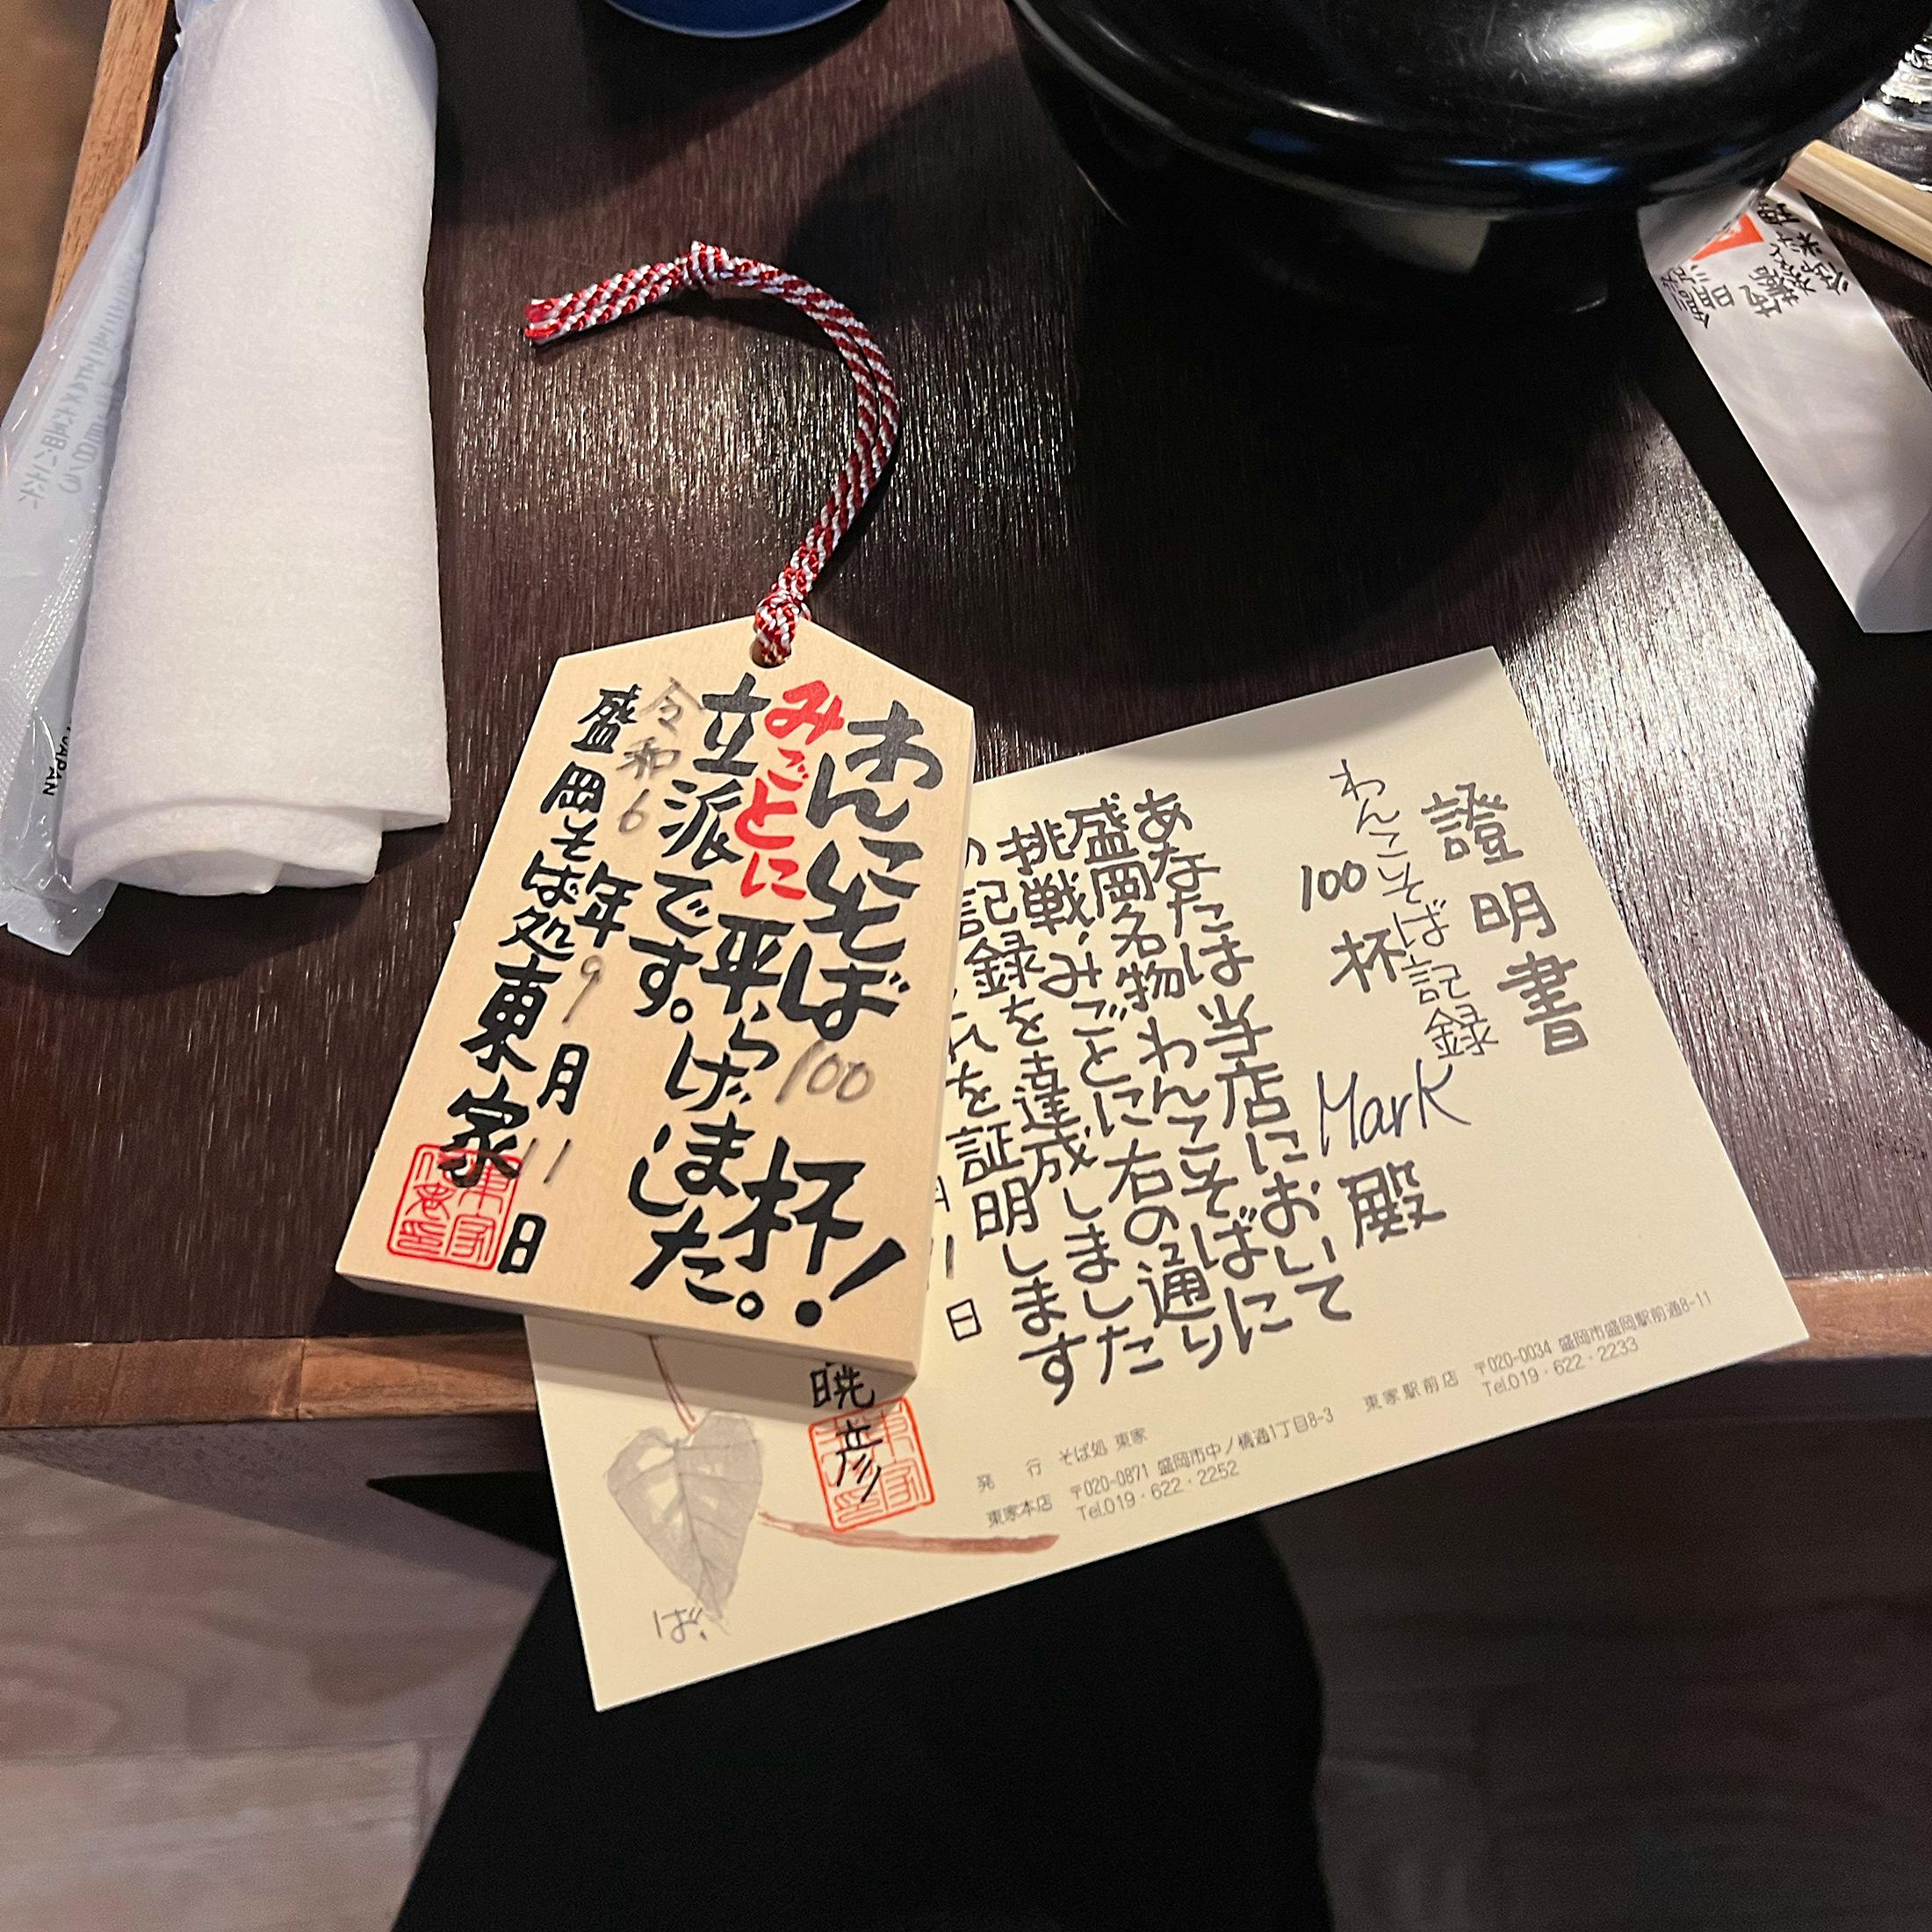 わんこそば100杯!
みごとに平らげました。
立派です。
令和6年9月11日
盛岡そば処東家
證明書
わんこそば記録
100杯
Mark殿
あなたは当店において
盛岡名物わんこそばに
挑戦、みごとに右の通り
の記録を達成しました
これを証明します
日
暁彦
発行 そば処 東家
東家本店 〒020-0871 盛岡市中ノ橋通1丁目8-3
Tel.019・622・2252
東家駅前店 〒020-0034 盛岡市盛岡駅前通8-11
Tel.019・622・2233
そば